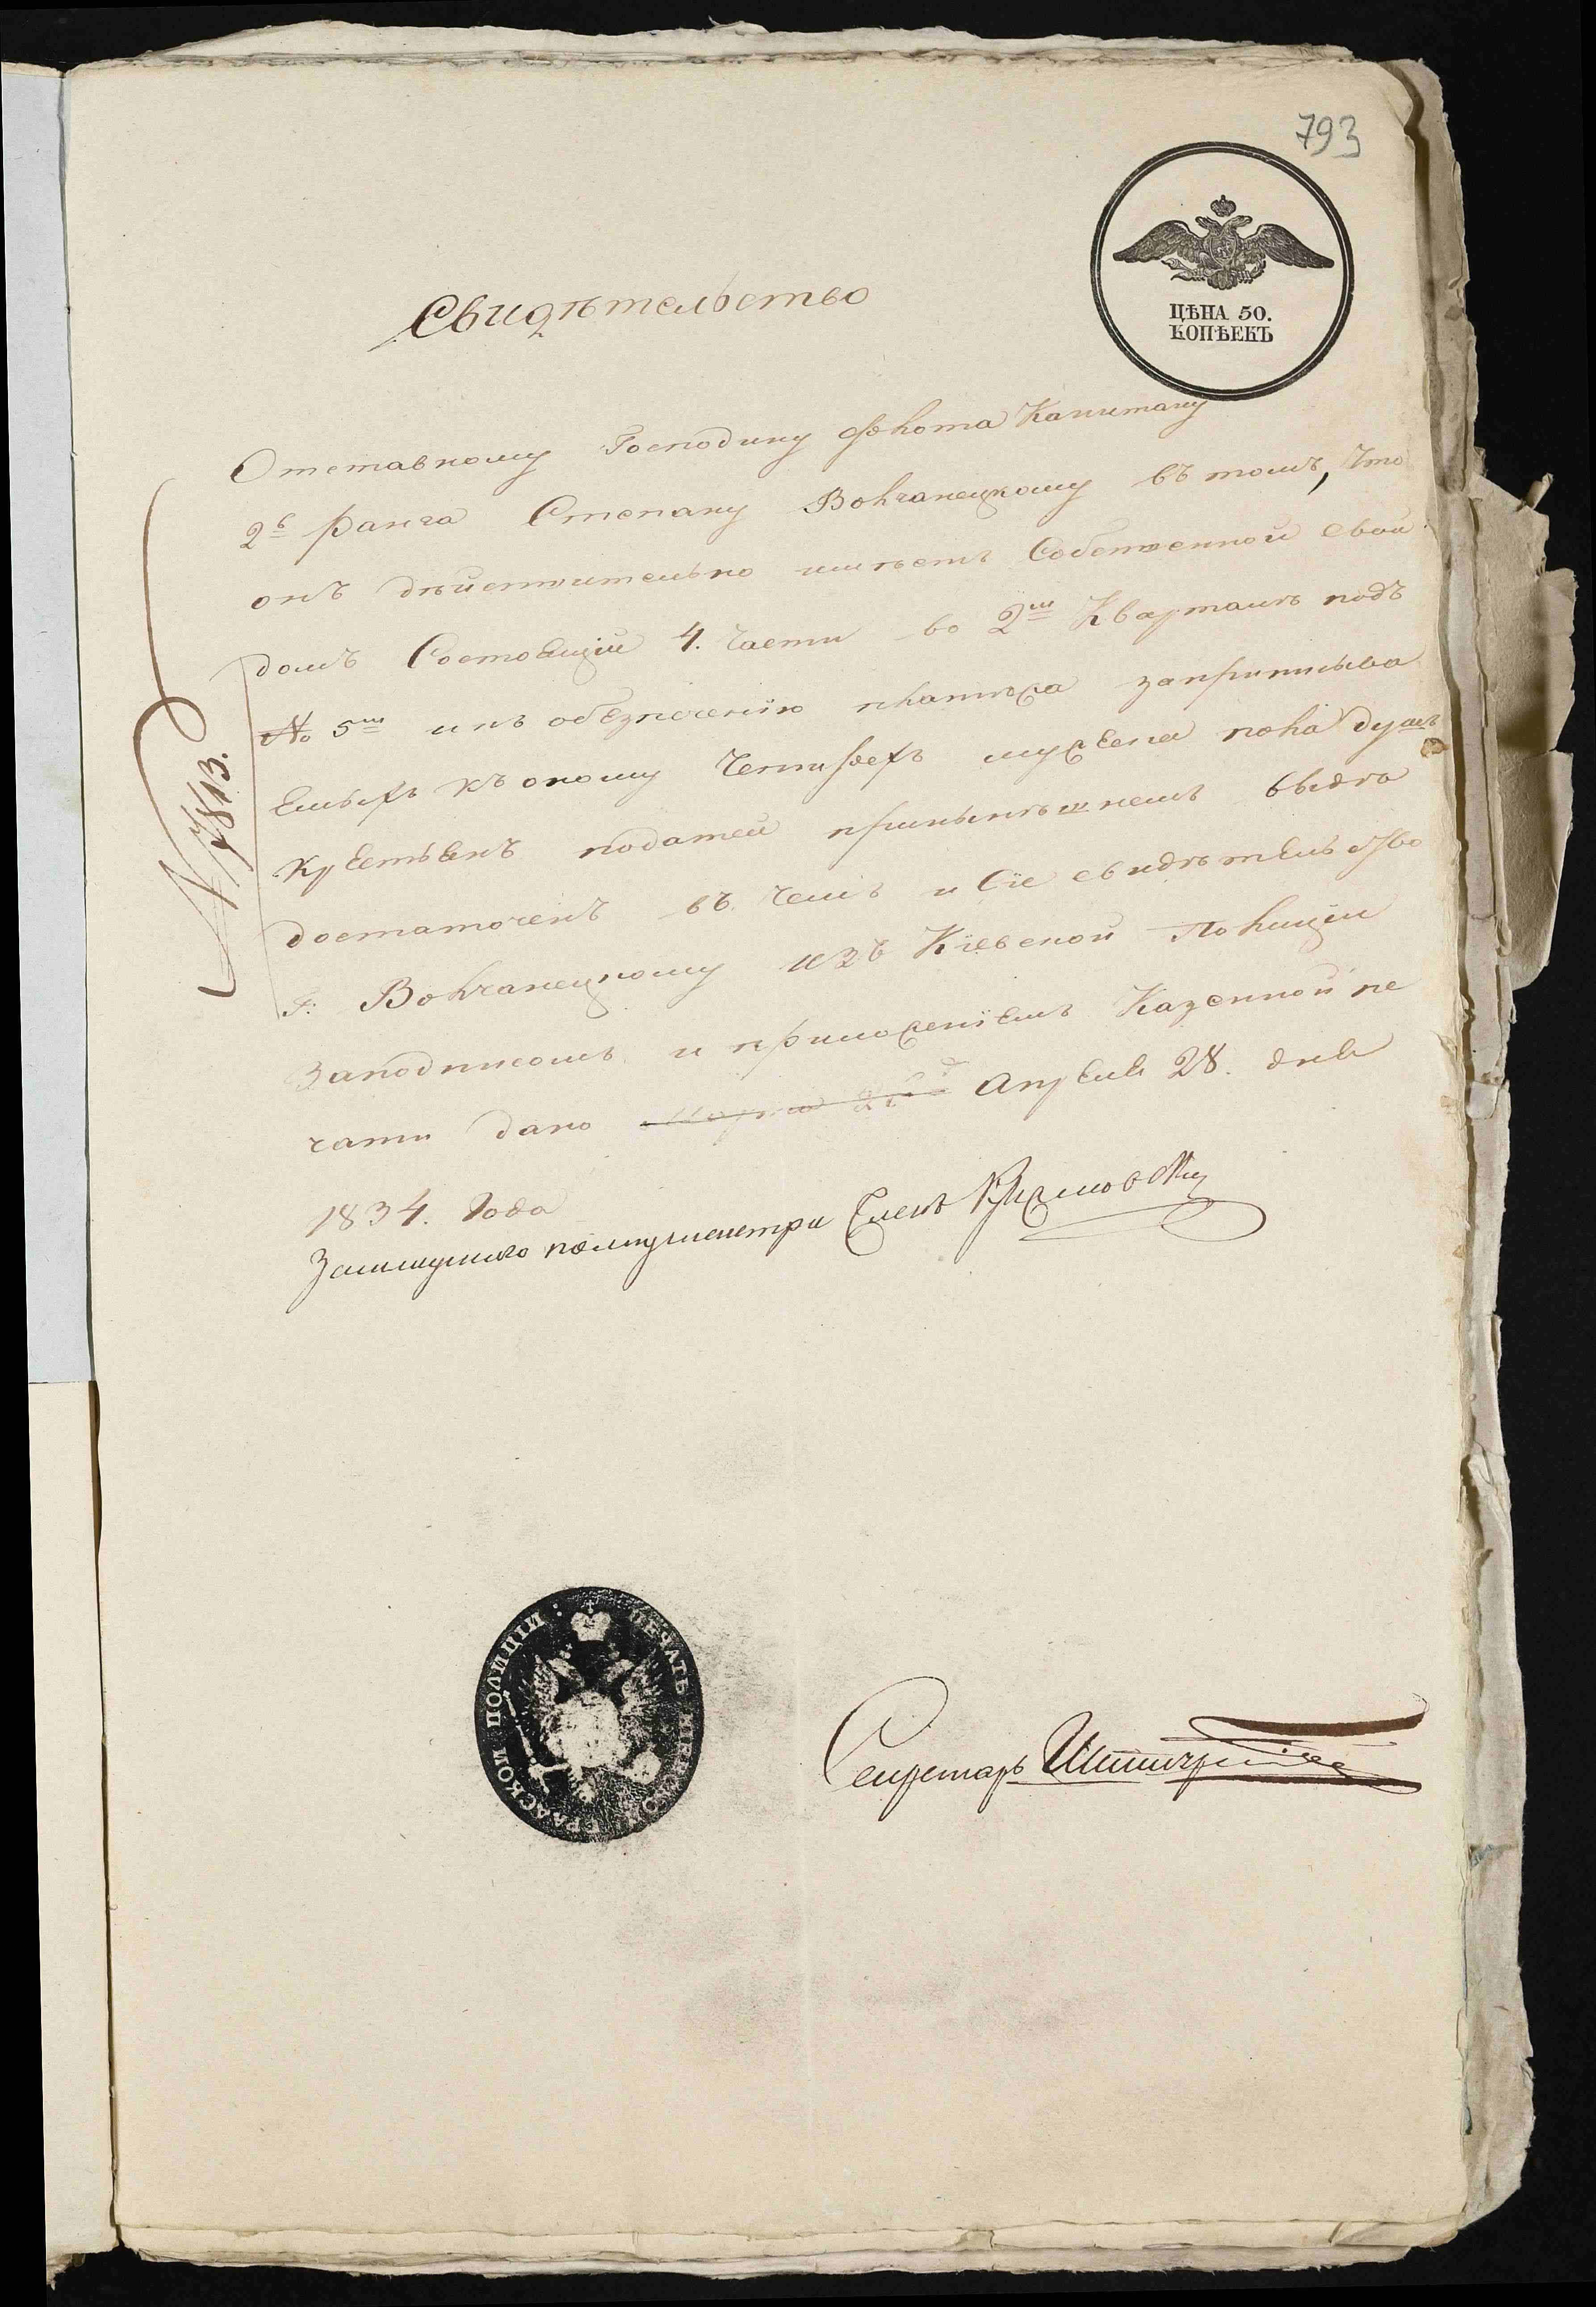 793
ЦѢНА 50.
КОПѢЕКЪ
Свидѣтельство
Отставному Господину флота Капитану
2го ранга Степану Волчанецкому въ томъ, Что
онъ дѣйствительно имѣетъ Собственной свой
домъ Состоящій 4. Части во 2мъ Кварталѣ подъ
№ 5мъ и къ обезпеченію платежа заприписыва
емыхъ къ оному Четырехъ мужеска пола душъ
крестьянъ податей
достаточенъ въ чемъ и Сіе свидѣтельство
г: Волчанецкому изъ Кіевской Полиціи
заподписомъ и приложеніемъ Казенной пе
чати дано Марта Апреля 28. дня
1834. Года
Полицмейстера Членъ
№ 7813.
ПЕЧАТЬ КІЕВСКОЙ ГРАДСКОЙ ПОЛИЦІИ
Секретарь